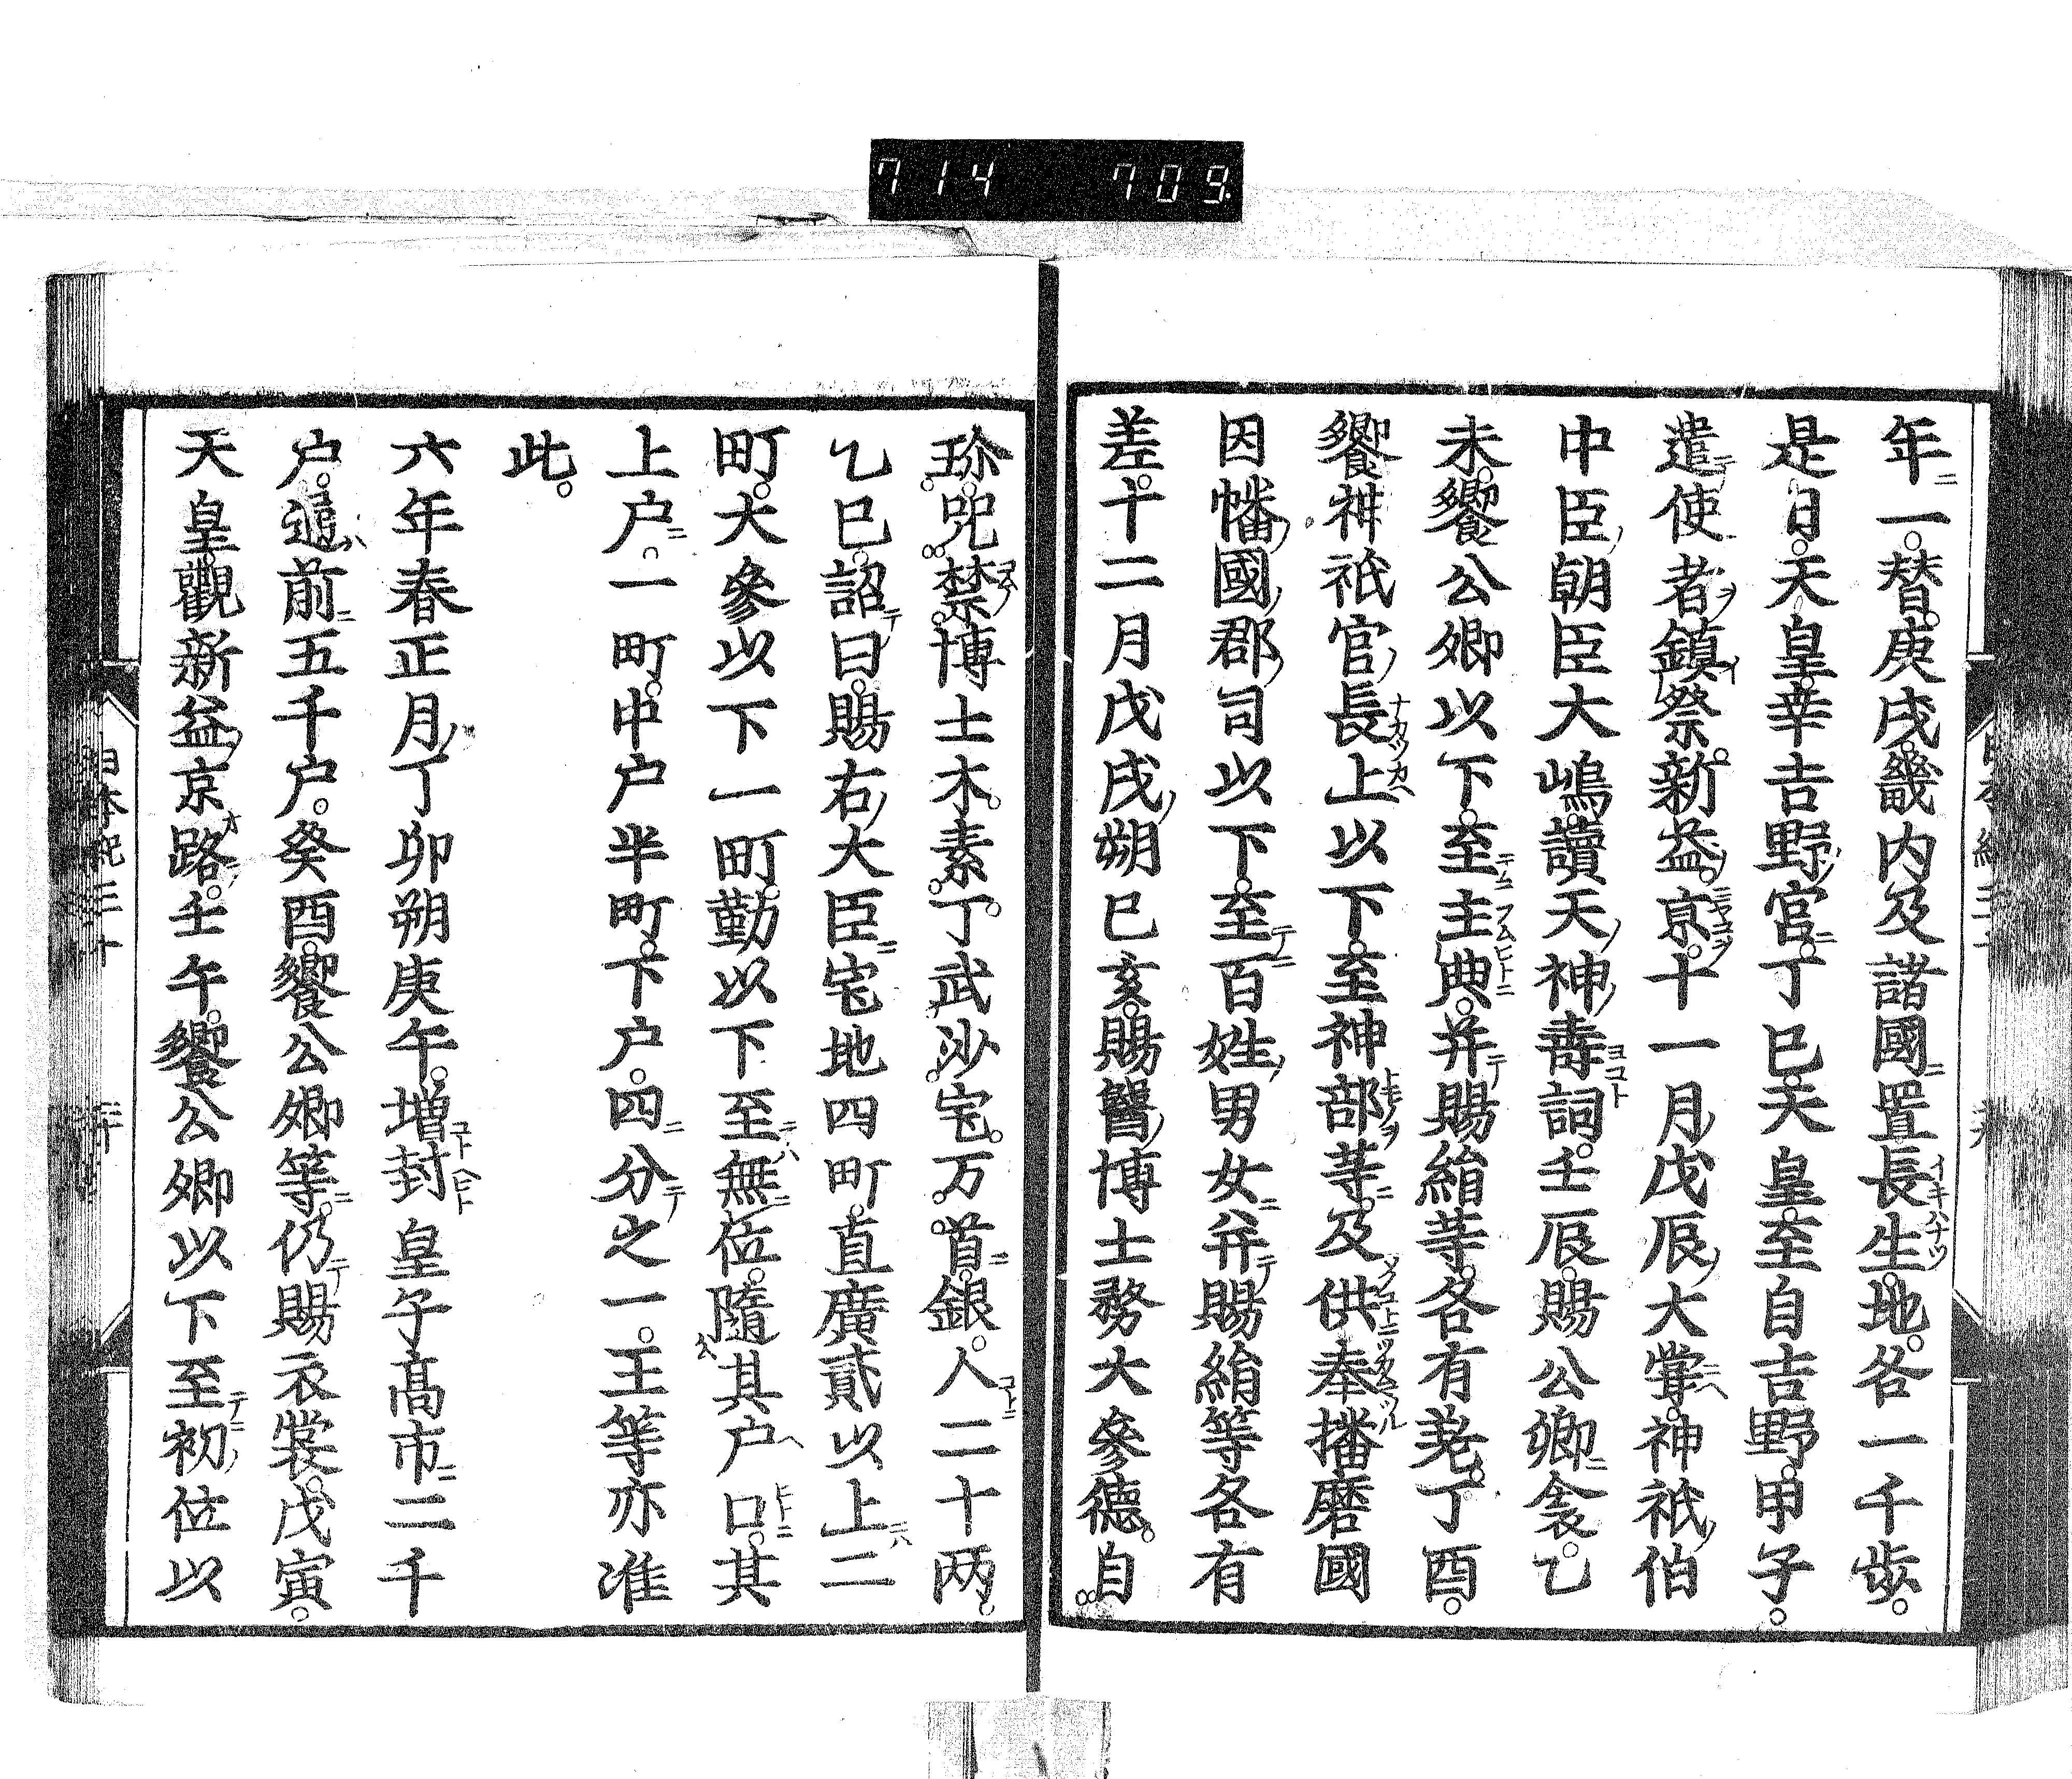 714 709
年一替庚戌畿内及諸國置長生地各一千歩
是日天皇幸吉野宮丁巳天皇至自吉野甲子
遣使者鎮祭新益京十一月戊辰大嘗神祇伯
中臣朝臣大嶋讀天神壽詞壬辰賜公卿衾乙
未饗公卿以下至主典并賜絹等各有差丁酉
饗神祇官長上以下至神部等及供奉播磨國
因幡國郡司以下至百姓男女并賜絹等各有
差十二月戊戌朔己亥賜醫博士務大參德自
珎咒禁博士木素丁武沙宅万首銀人二十两
乙巳詔曰賜右大臣宅地四町直廣貳以上二
町大參以下一町勤以下至無位隨其户口其
上户一町中户半町下户四分之一王等亦准
此
六年春正月丁卯朔庚午增封皇子高市二千
户通前五千户癸酉饗公卿等仍賜衣裳戊寅
天皇觀新益京路壬午饗公卿以下至初位以
日本紀三十